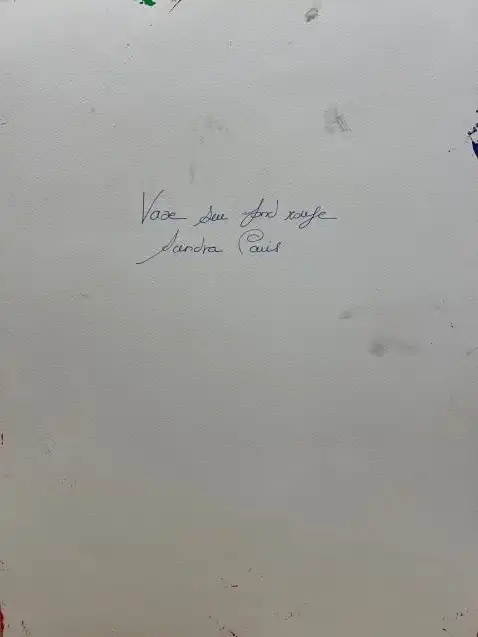 Vase sur fond rouge
Sandra Paris